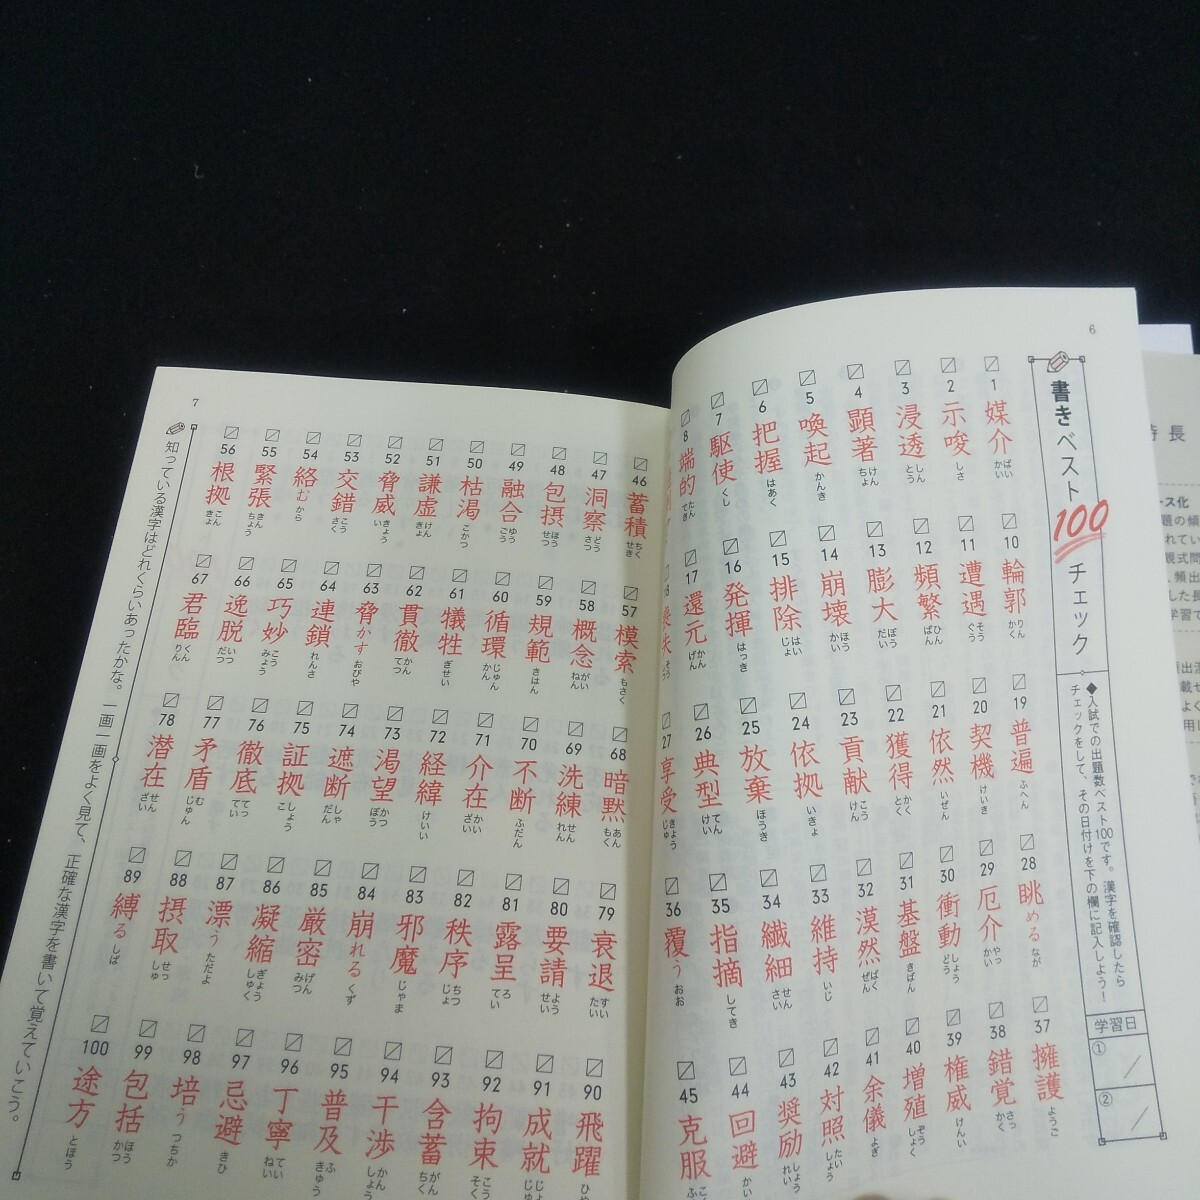 6
書きベスト100チェック
◆入試での出題数ベスト100です。漢字を確認したら
チェックをして、その日付けを下の欄に記入しよう！
学習日
①
②
1 媒介 ばいかい
2 示唆 しさ
3 浸透 しんとう
4 顕著 けんちょ
5 喚起 かんき
6 把握 はあく
7 駆使 くし
8 端的 たんてき
10 輪郭 りんかく
11 遭遇 そうぐう
12 頻繁 ひんぱん
13 膨大 ぼうだい
14 崩壊 ほうかい
15 排除 はいじょ
16 発揮 はっき
17 還元 かんげん
18 喪失
19 普遍 ふへん
20 契機 けいき
21 依然 いぜん
22 獲得 かくとく
23 貢献 こうけん
24 依拠 いきょ
25 放棄 ほうき
26 典型 てんけい
27 享受 きょうじゅ
28 眺める なが
29 厄介 やっかい
30 衝動 しょうどう
31 基盤 きばん
32 漠然 ばくぜん
33 維持 いじ
34 繊細 せんさい
35 指摘 してき
36 覆う おお
37 擁護 ようご
38 錯覚 さっかく
39 権威 けんい
40 増殖 ぞうしょく
41 余儀 よぎ
42 対照 たいしょう
43 奨励 しょうれい
44 回避 かいひ
45 克服
7
46 蓄積 ちくせき
47 洞察 どうさつ
48 包摂 ほうせつ
49 融合 ゆうごう
50 枯渇 こかつ
51 謙虚 けんきょ
52 脅威 きょうい
53 交錯 こうさく
54 絡む から
55 緊張 きんちょう
56 根拠 こんきょ
57 模索 もさく
58 概念 がいねん
59 規範 きはん
60 循環 じゅんかん
61 犠牲 ぎせい
62 貫徹 かんてつ
63 脅かす おびや
64 連鎖 れんさ
65 巧妙 こうみょう
66 逸脱 いつだつ
67 君臨 くんりん
68 暗黙 あんもく
69 洗練 せんれん
70 不断 ふだん
71 介在 かいざい
72 経緯 けいい
73 渇望 かつぼう
74 遮断 しゃだん
75 証拠 しょうこ
76 徹底 てってい
77 矛盾 むじゅん
78 潜在 せんざい
79 衰退 すいたい
80 要請 ようせい
81 露呈 ろてい
82 秩序 ちつじょ
83 邪魔 じゃま
84 崩れる くず
85 厳密 げんみつ
86 凝縮 ぎょうしゅく
87 漂う ただよ
88 摂取 せっしゅ
89 縛る しば
90 飛躍
91 成就
92 拘束
93 含蓄 がんちく
94 干渉 かんしょう
95 普及 ふきゅう
96 丁寧 ていねい
97 忌避 きひ
98 培う つちか
99 包括 ほうかつ
100 途方 とほう
知っている漢字はどれくらいあったかな。一画一画をよく見て、正確な漢字を書いて覚えていこう。